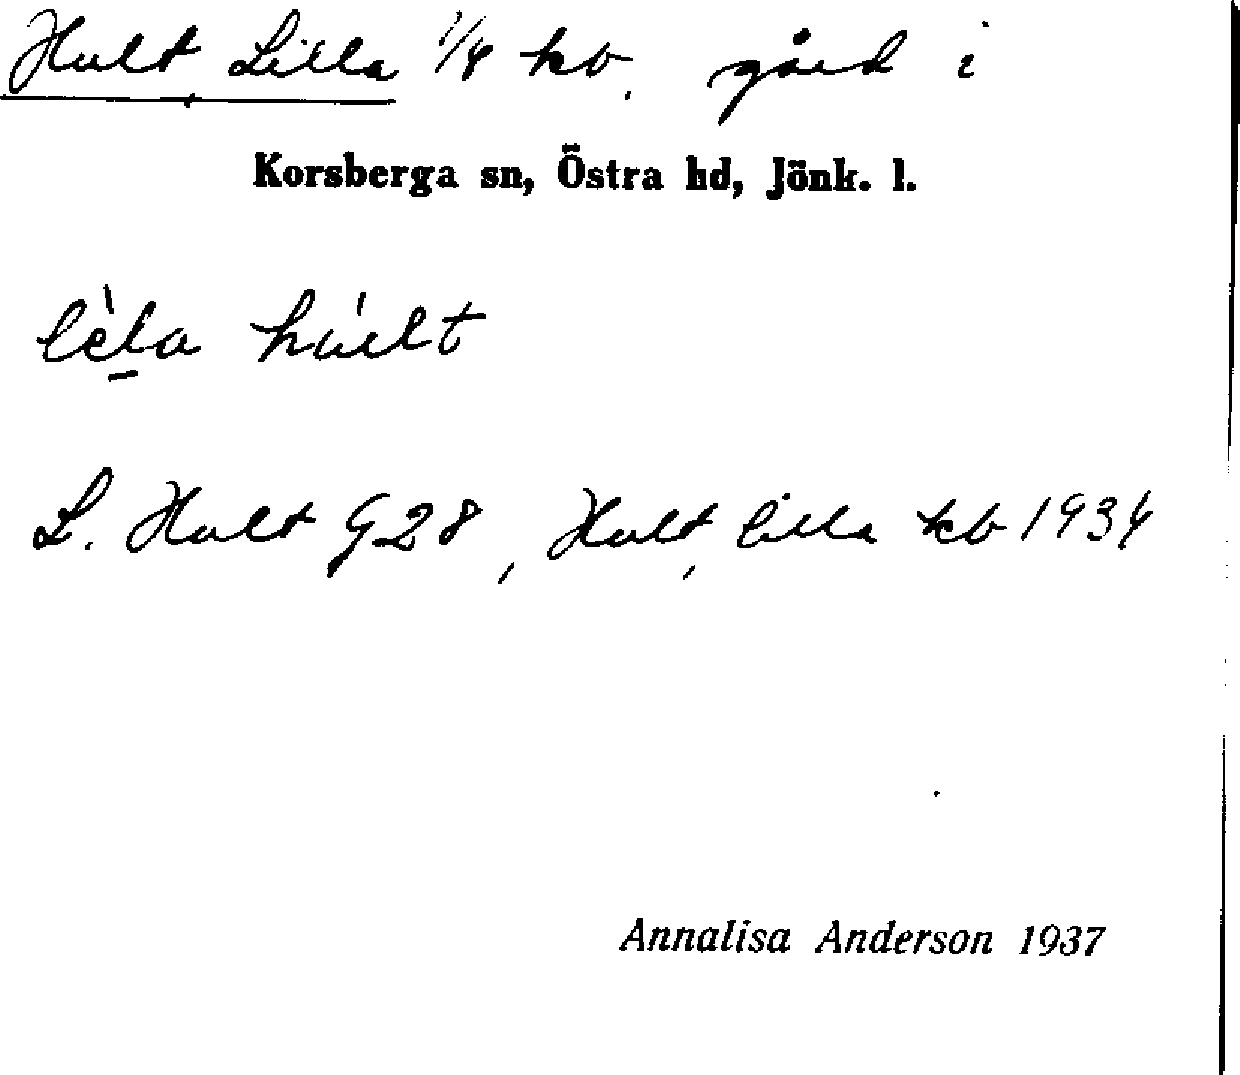 Hult, Lilla 1/4 kb. gård i
Korsberga sn, Östra hd, Jönk. l.
lèla húlt
L. Hult G28, Hult, lilla kb 1934
Annalisa Anderson 1937